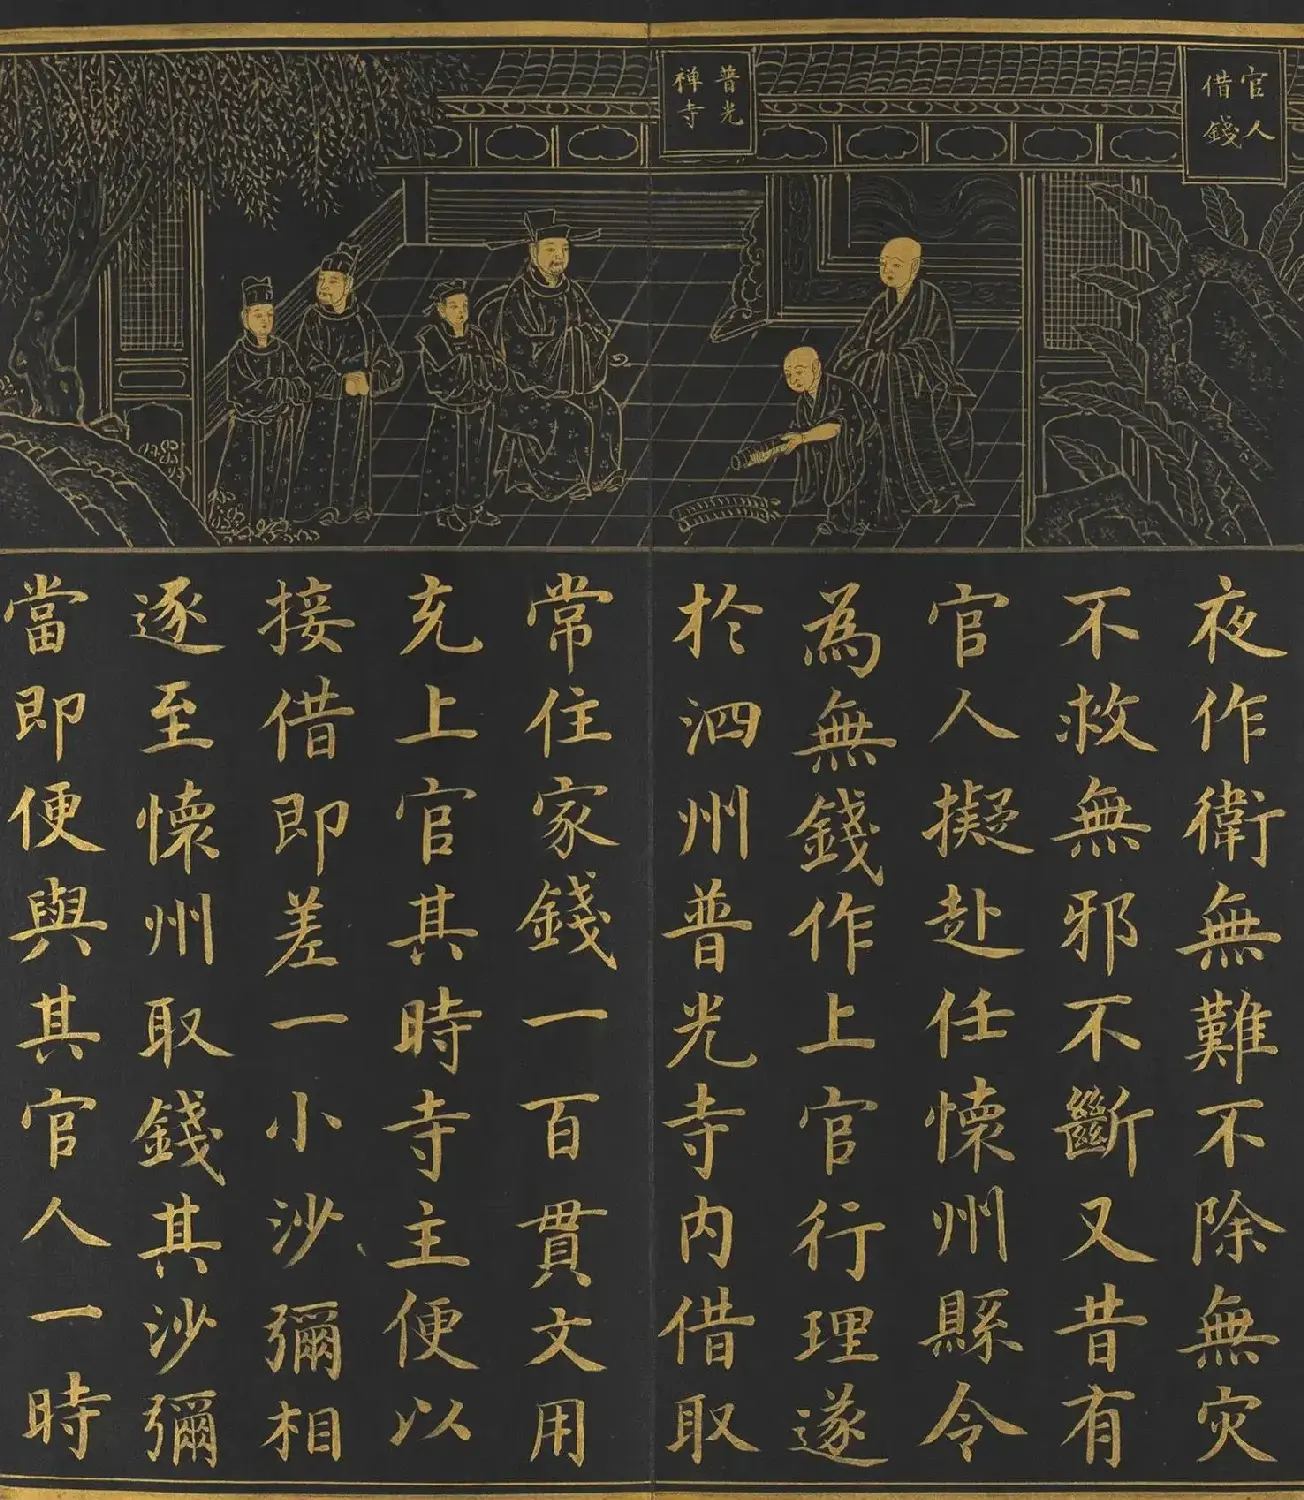 官人
借錢
普光
禅寺
夜作衛無難不除無灾
不救無邪不斷又昔有
官人擬赴任懐州縣令
為無錢作上官行理遂
於泗州普光寺内借取
常住家錢一百貫文用
充上官其時寺主便以
接借即差一小沙彌相
逐至懐州取錢其沙彌
當即便與其官人一時